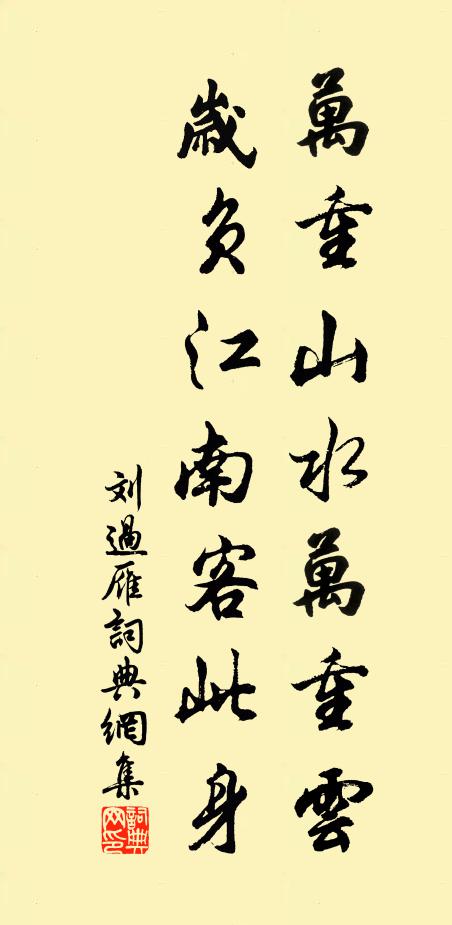 萬重山水萬重雲
歲負江南客此身
刘過雁詞典網集
詞典
网印